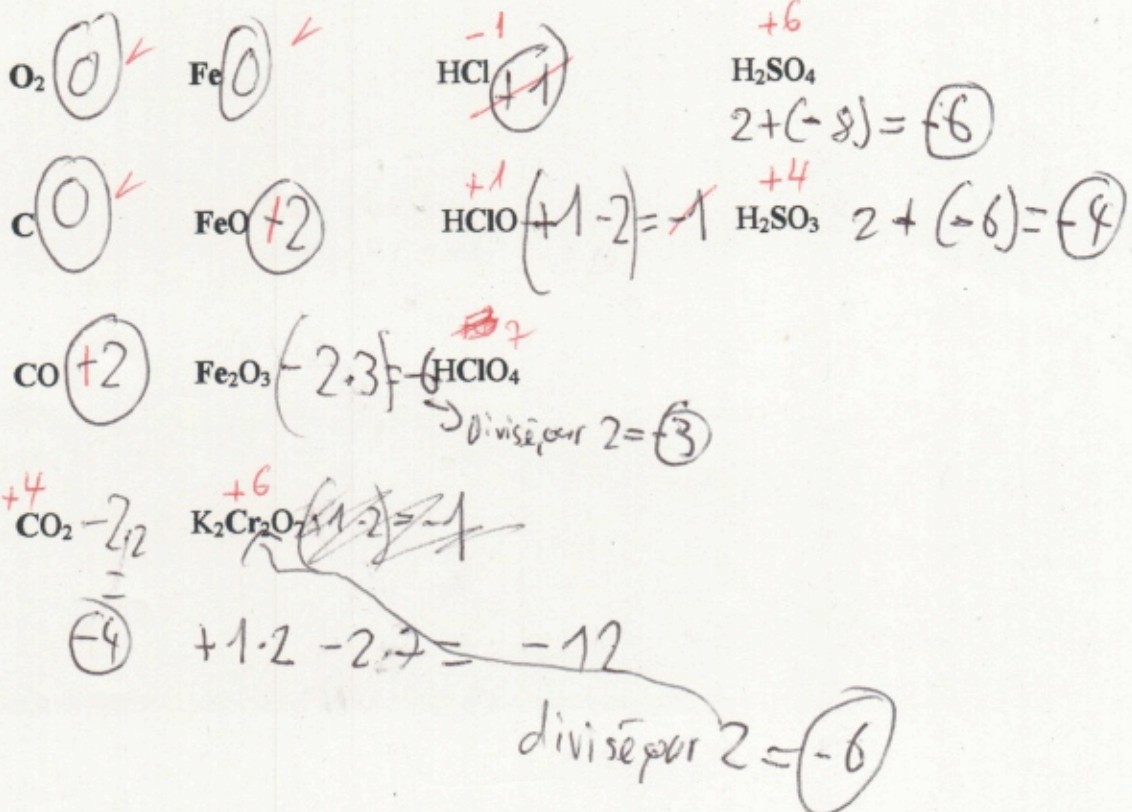 -1 +6
O₂ 0 ✓ Fe 0 ✓ HCl +1 H₂SO₄
2+(-8) = -6
+1 +4
C 0 ✓ FeO +2 HClO (+1-2) = -1 H₂SO₃ 2 + (-6) = -4
7
CO +2 Fe₂O₃ (-2.3) = -6 HClO₄
→ Divisé par 2 = -3
+4 +6
CO₂ -2.2 K₂Cr₂O₇ (+1-2) = -1
=
-4 +1·2 -2·7 = -12
divisé par 2 = -6